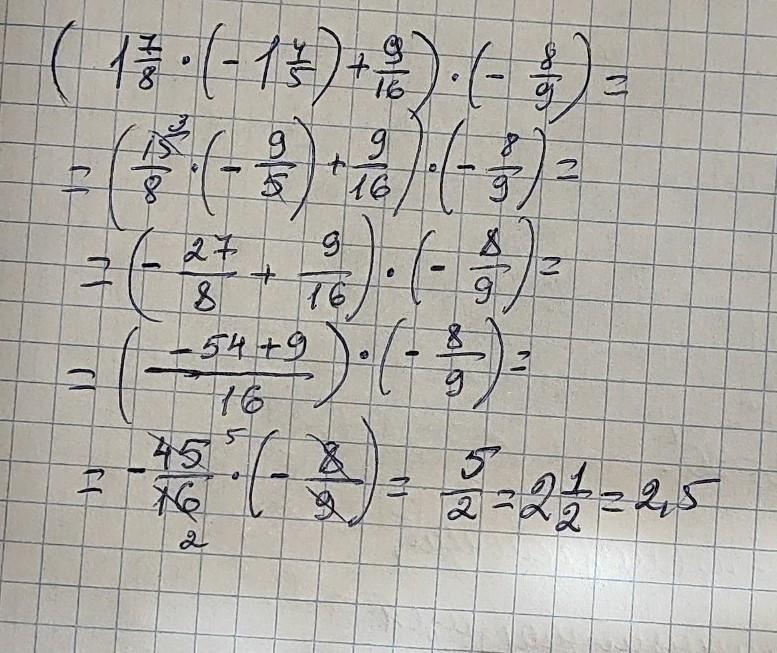 ( 1 7/8 · (- 1 4/5) + 9/16 ) · (- 8/9) =
= ( 15 3/8 · (- 9/5) + 9/16 ) · (- 8/9) =
= (- 27/8 + 9/16 ) · (- 8/9) =
= ( -54+9/16 ) · (- 8/9) =
= - 45 5/16 2 · (- 8/9) = 5/2 = 2 1/2 = 2,5